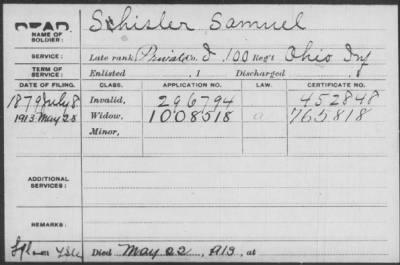 DEAD.
NAME OF SOLDIER: Schisler Samuel
SERVICE: Late rank, Private Co. I, 100 Reg't Ohio Inf
TERM OF SERVICE: Enlisted , 1 Discharged , 1
DATE OF FILING. CLASS. APPLICATION NO. LAW. CERTIFICATE NO.
1879 July 8 Invalid, 296794 452848
1913 May 28 Widow, 1008518 a 765818
Minor,
ADDITIONAL SERVICES:
REMARKS:
Died May 22, 1913, at